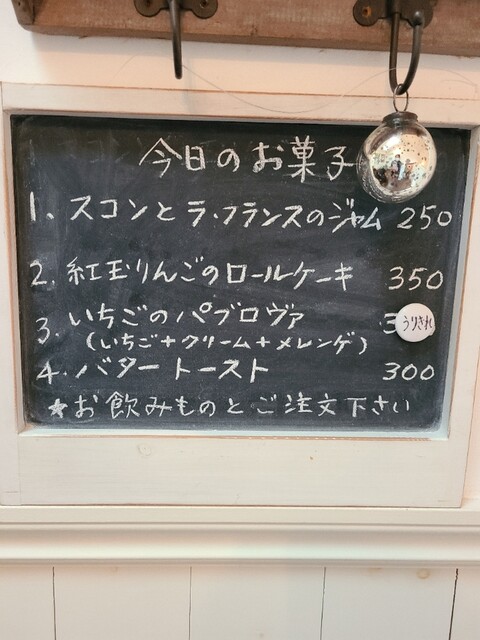 今日のお菓子
1. スコンとラ・フランスのジャム 250
2. 紅玉りんごのロールケーキ 350
3. いちごのパブロヴァ 3 うりきれ
(いちご+クリーム+メレンゲ)
4. バタートースト 300
★お飲みものとご注文下さい